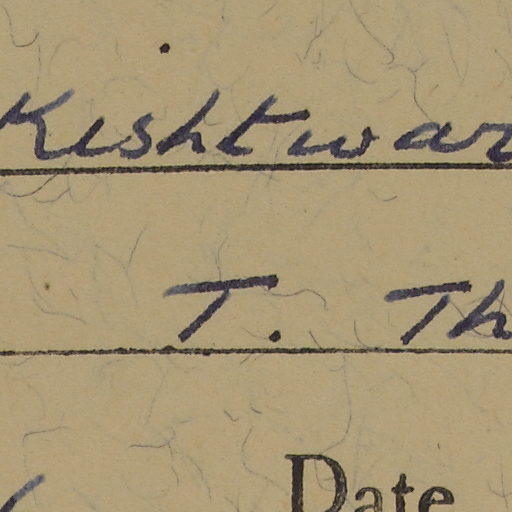 Kishtwar
T. Th
Date